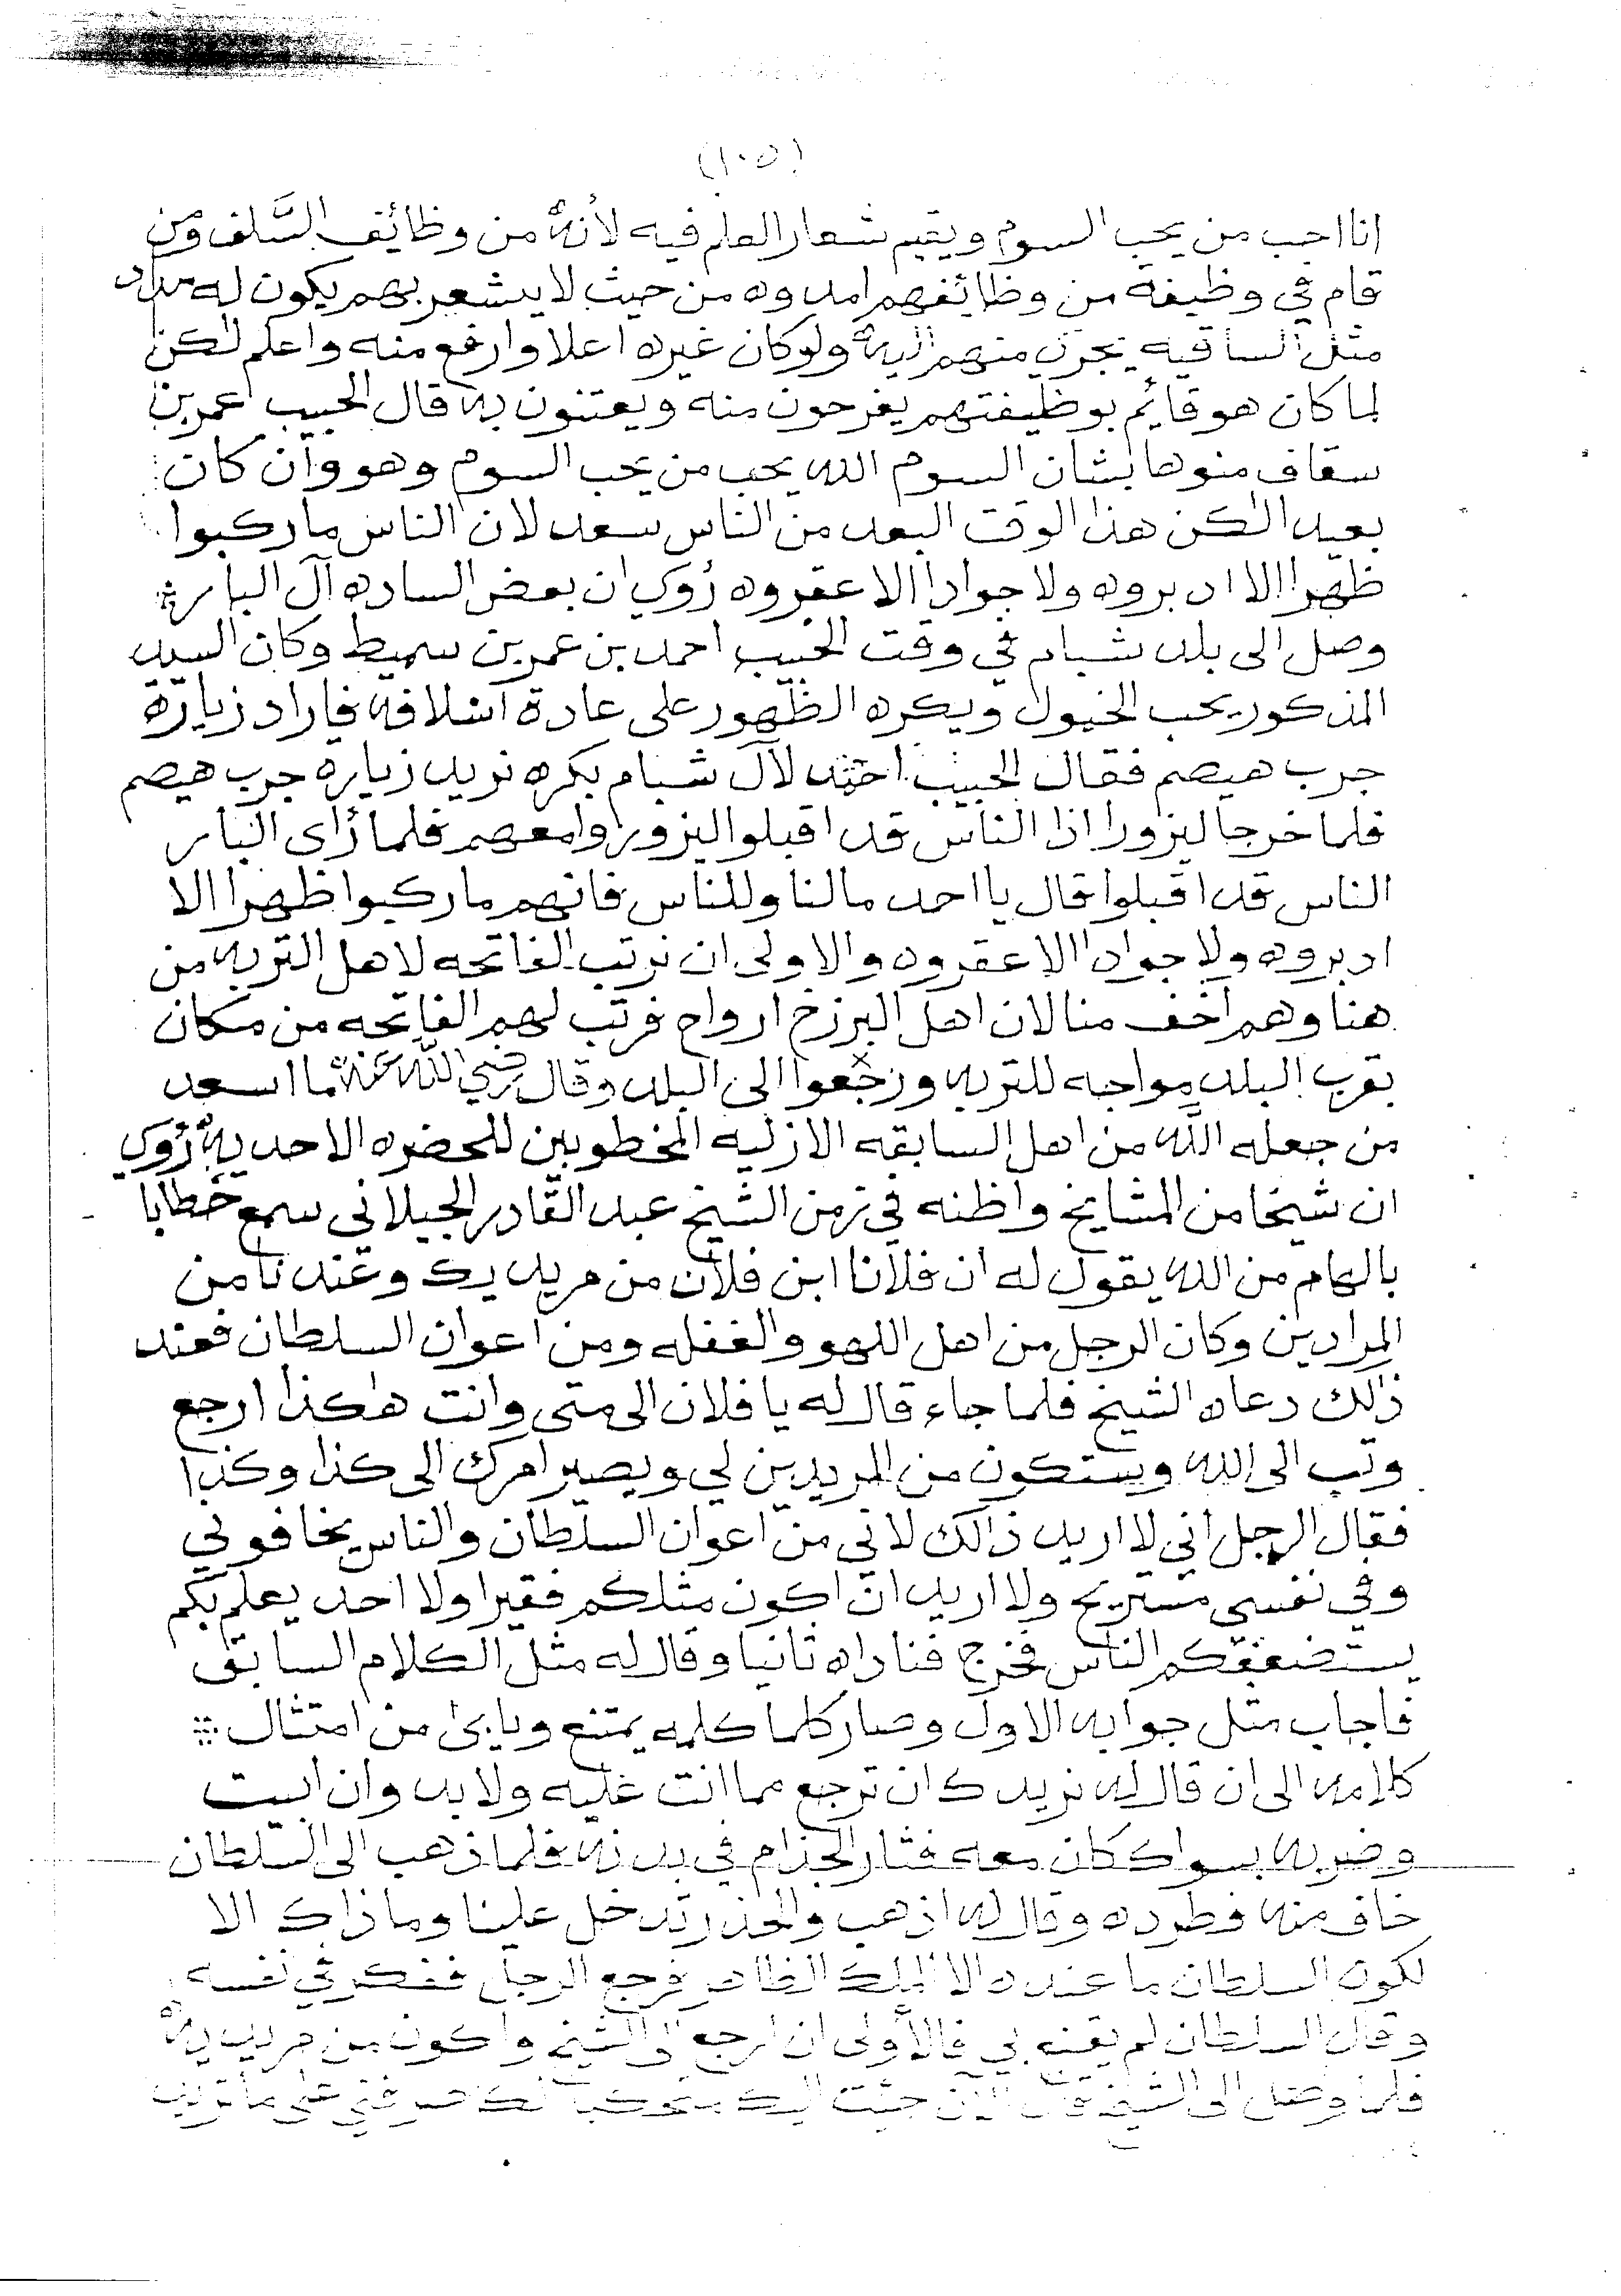 (١٠٥)
انا احب من يحب السوم ويقيم شعار العلم فيه لأنه من وظائف السَّلف ومن
قام في وظيفة من وظائفهم امدوه من حيث لا يشعر بهم يكون له مدد
مثل الساقيه يجري منهم اليه ولو كان غيره اعلا وارفع منه واعلم لكن
لما كان هو قائم بوظيفتهم يفرحون منه ويعتنون به قال الحبيب عمر بن
سقاف منوها بشان السوم الله يحب من يحب السوم وهو وان كان
بعيد الكن هذا الوقت البعد من الناس سعد لان الناس ما ركبوا
ظهرا الا ادبروه ولا جوادا الا عقروه رُوي ان بعض الساده آل البار
وصل الى بلد شبام في وقت الحبيب احمد بن عمر بن سميط وكان السيد
المذكور يحب الخمول ويكره الظهور على عادة اسلافه فاراد زيارة
جرب هيصم فقال الحبيب احمد لآل شبام بكره نريد زياره جرب هيصم
فلما خرجا ليزورا اذا الناس قد اقبلوا ليزوروا معهم فلما رأى البار
الناس قد اقبلوا قال يا احمد مالنا وللناس فانهم ما ركبوا ظهرا الا
ادبروه ولا جوادا الا عقروه والاولى ان نرتب الفاتحه لاهل التربه من
هنا وهم اخف منا لان اهل البرزخ ارواح فرتب لهم الفاتحه من مكان
بقرب البلد مواجه للتربه ورجعوا الى البلد وقال رضي الله عنه ما اسعد
من جعله الله من اهل السابقه الازليه المخطوبين للحضره الاحديه رُوي
ان شيخا من المشايخ واظنه في زمن الشيخ عبد القادر الجيلاني سمع خطابا
بالهام من الله يقول له ان فلانا ابن فلان من مريديك وعندنا من
المرادين وكان الرجل من اهل اللهو والغفله ومن اعوان السلطان فعند
ذالك دعاه الشيخ فلما جاء قال له يا فلان الى متى وانت هكذا ارجع
وتب الى الله وستكون من المريدين لي ويصير امرك الى كذا وكذا
فقال الرجل اني لا اريد ذالك لاني من اعوان السلطان والناس يخافوني
وفي نفسي مستريح ولا اريد ان اكون مثلكم فقيرا ولا احد يعلم بكم
يستضعفكم الناس فخرج فناداه ثانيا وقال له مثل الكلام السابق
فاجاب مثل جوابه الاول وصار كلما كلمه يمتنع ويابى من امتثال
كلامه الى ان قال له نريدك ان ترجع مما انت عليه ولا بد وان ابيت
وضربه بسواك كان معه فثار الجذام في بدنه فلما ذهب الى السلطان
خاف منه فطرده وقال له اذهب والحذر تدخل علينا وما ذاك الا
لكون السلطان ما عنده الا الملك الظاهر فرجع الرجل ففكر في نفسه
وقال السلطان لم يقبل بي فالأولى ان ارجع الى الشيخ واكون من مريديه
فلما وصل الى الشيخ قال الآن جئت اليك صرفني على ما تريد